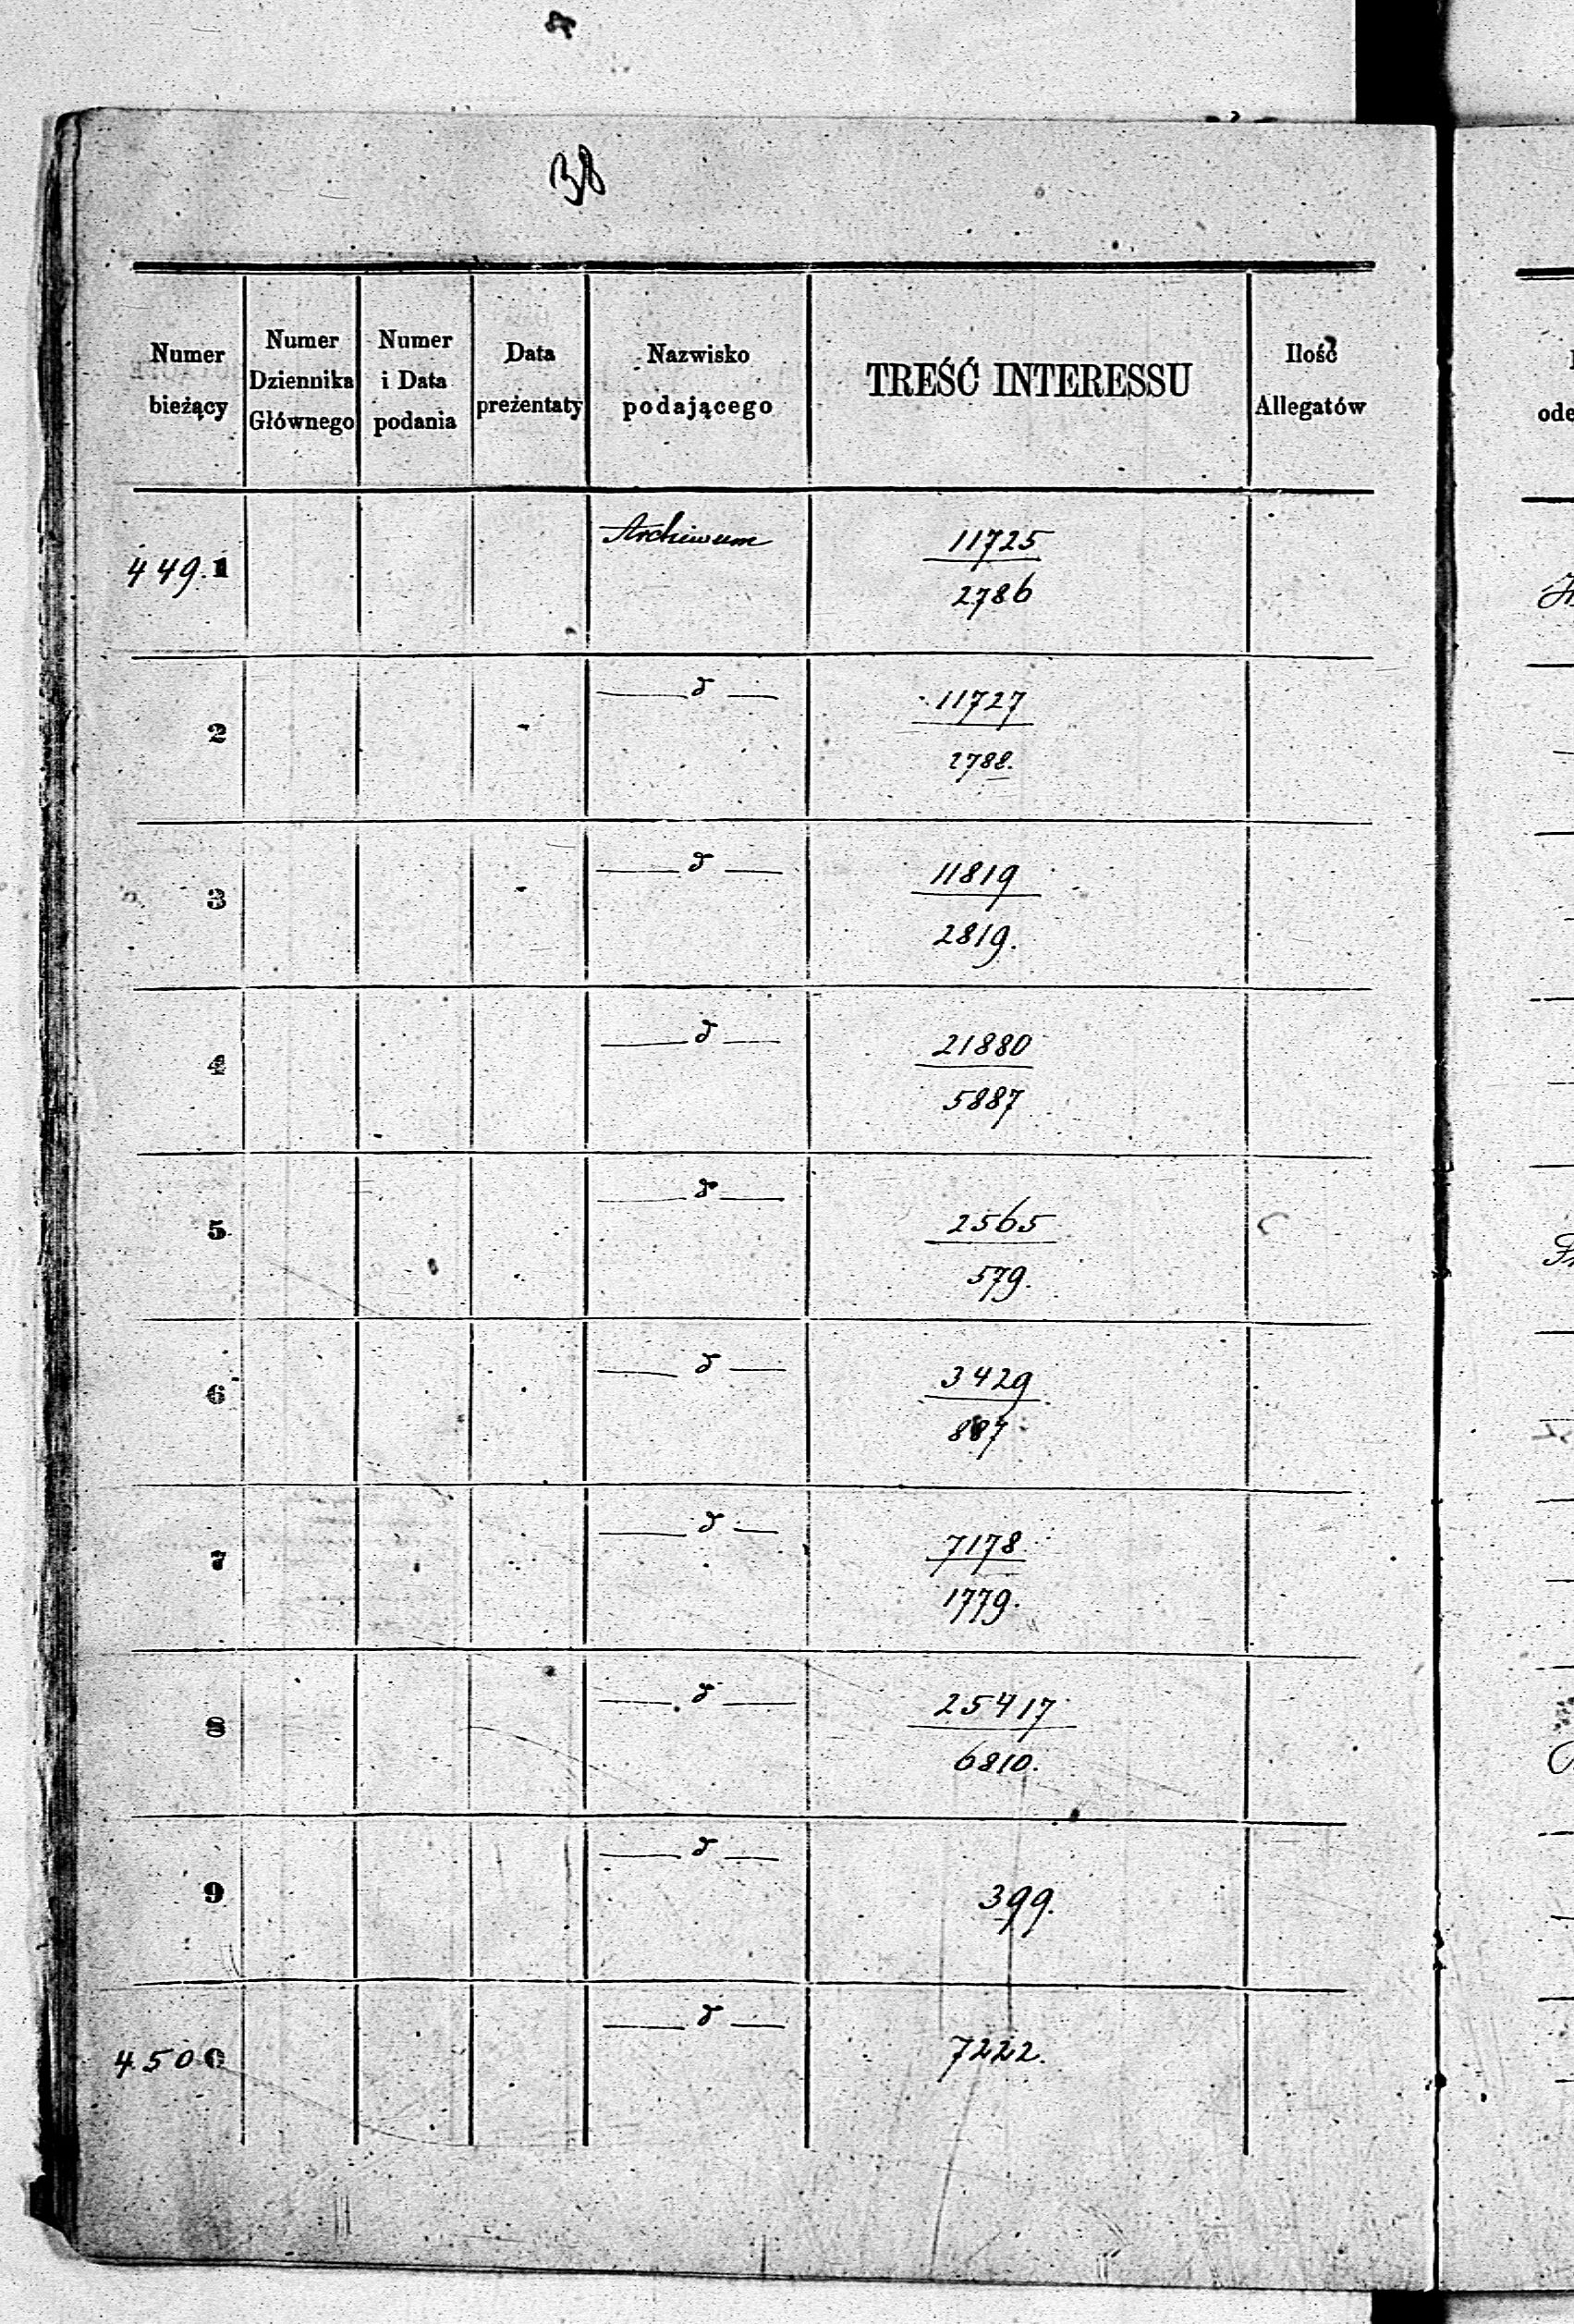 Numer bieżący
Numer Dziennika Głównego
Numer i Data podania
Data preżentaty
Nazwisko podającego
TREŚĆ INTERESSU
Ilość Allegatów
449.1 Archiwum 11725
2786
2 — d — 11727
2788.
3 — d — 11819
2819.
4 — d — 21880
5887
5 — d — 2565
579.
6 — d — 3429
887
7 — d — 7178
1779.
8 — d — 25417
6810.
9 — d — 399.
4500 — d — 7222.